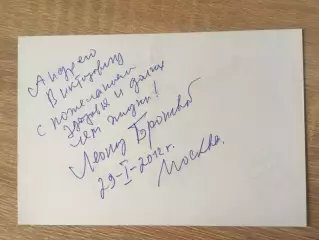 Андрею
Викторовичу
с пожеланием
здоровья и долгих
лет жизни!
Леонид Броневой
29-I-2012 г.
Москва.